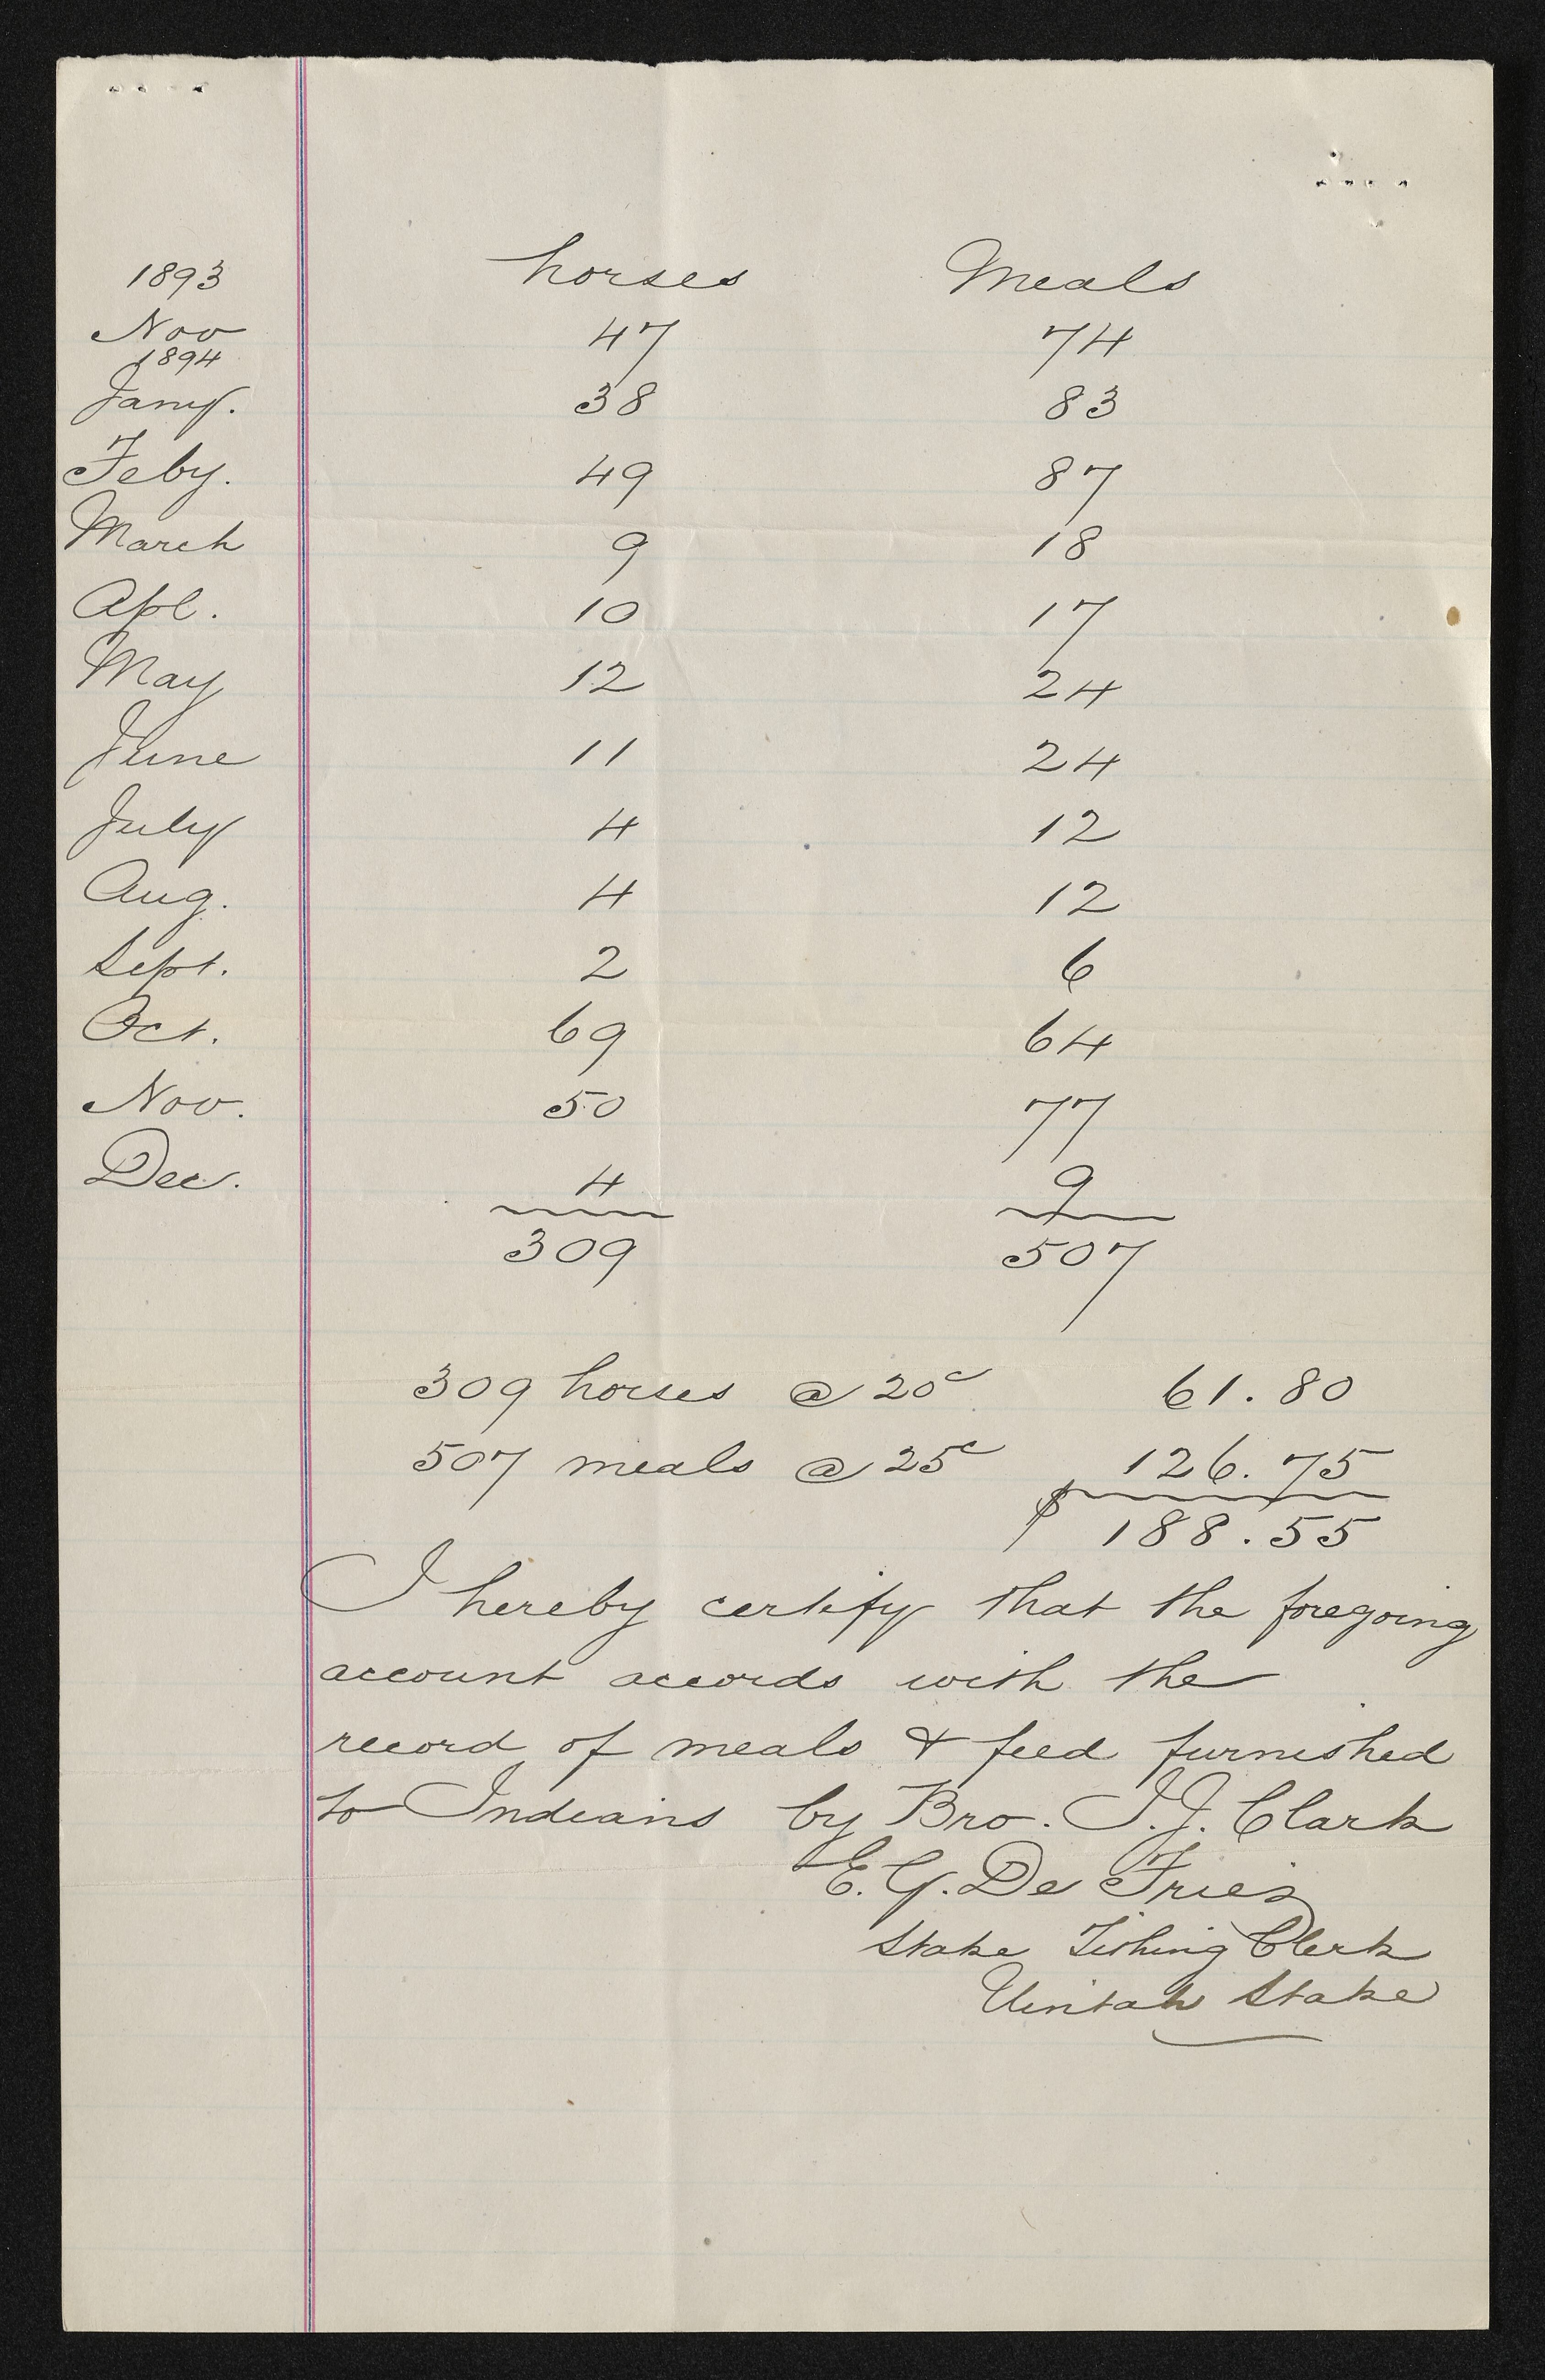 1893 horses Meals
Nov 47 74
1894
Jany. 38 83
Feby. 49 87
March 9 18
Apl. 10 17
May 12 24
June 11 24
July 4 12
Aug. 4 12
Sept. 2 6
Oct. 69 64
Nov. 50 77
Dec. 4 9
309 507
309 horses @ 20c 61.80
507 meals @ 25c 126.75
$ 188.55
I hereby certify that the foregoing
account accords with the
record of meals & feed furnished
to Indians by Bro. I. J. Clark
E. G. De Fries
Stake Tithing Clerk
Uintah Stake